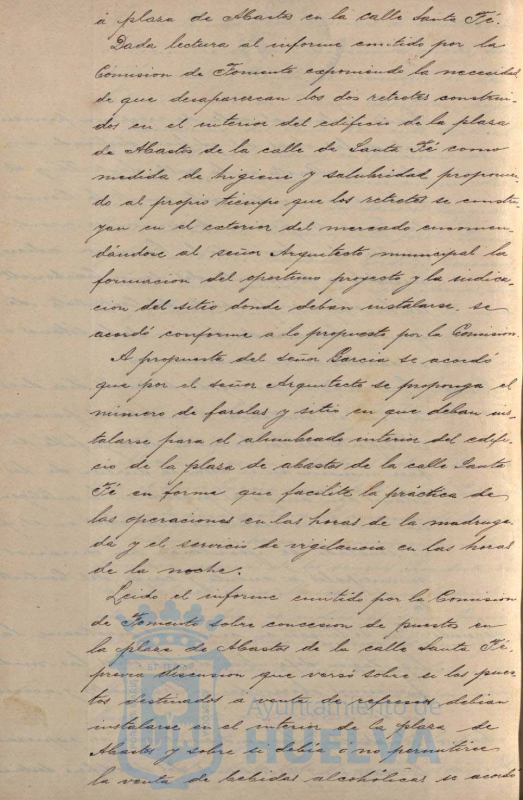 á plaza de Abastos en la calle Santa Fé.
Dada lectura al informe emitido por la
Comision de Fomento exponiendo la necesidad
de que desaparezcan los dos retretes construi-
dos en el interior del edificio de la plaza
de Abastos de la calle de Santa Fé como
medida de higiene y salubridad, proponien-
do al propio tiempo que los retretes se constru-
yan en el exterior del mercado encomen-
dándose al señor Arquitecto municipal la
formacion del oportuno proyecto y la indica-
cion del sitio donde deban instalarse, se
acordó conforme a lo propuesto por la Comision.
A propuesta del señor Garcia se acordó
que por el señor Arquitecto se proponga el
número de farolas y sitio en que deban ins-
talarse para el alumbrado interior del edifi-
cio de la plaza de abastos de la calle Santa
Fé en forma que facilite la práctica de
las operaciones en las horas de la madruga-
da y el servicio de vigilancia en las horas
de la noche.
Leido el informe emitido por la Comision
de Fomento sobre concesion de puestos en
la plaza de Abastos de la calle Santa Fé,
previa discusion que versó sobre si los pues-
tos destinados a venta de debian
instalarse en el interior de la plaza de
Abastos y sobre si debia ó no permitirse
la venta de bebidas alcohólicas se acordó
Ayuntamiento de
HUELVA